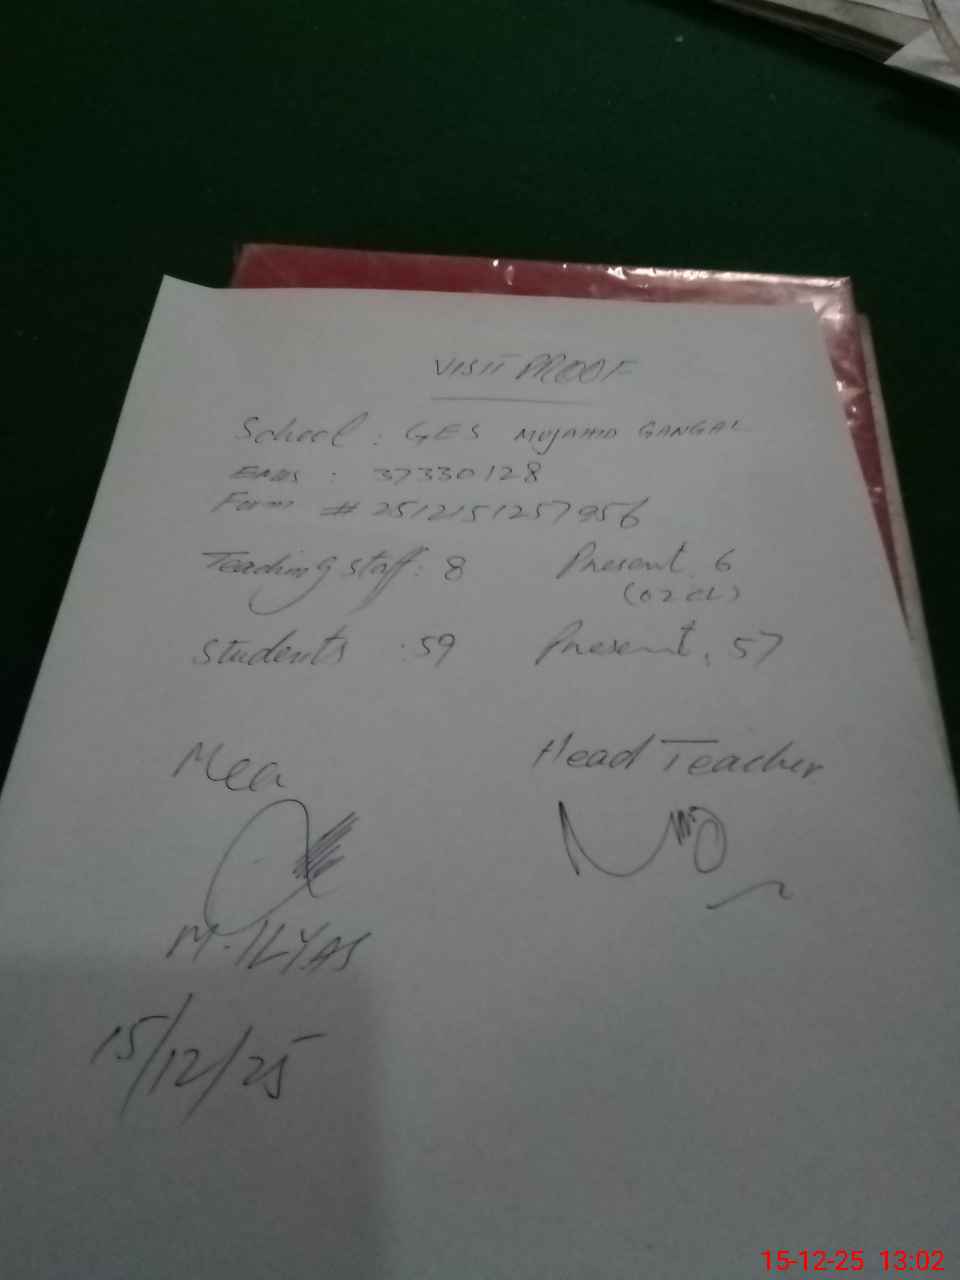 VISIT PROOF
School : GES MUJAHID GANGAL
EMIS : 37330128
Form # 2512151257956
Teaching staff : 8 Present 6
(02 CL)
Students : 59 Present. 57
Mea Head Teacher
M. ILYAS
15/12/25
15-12-25 13:02